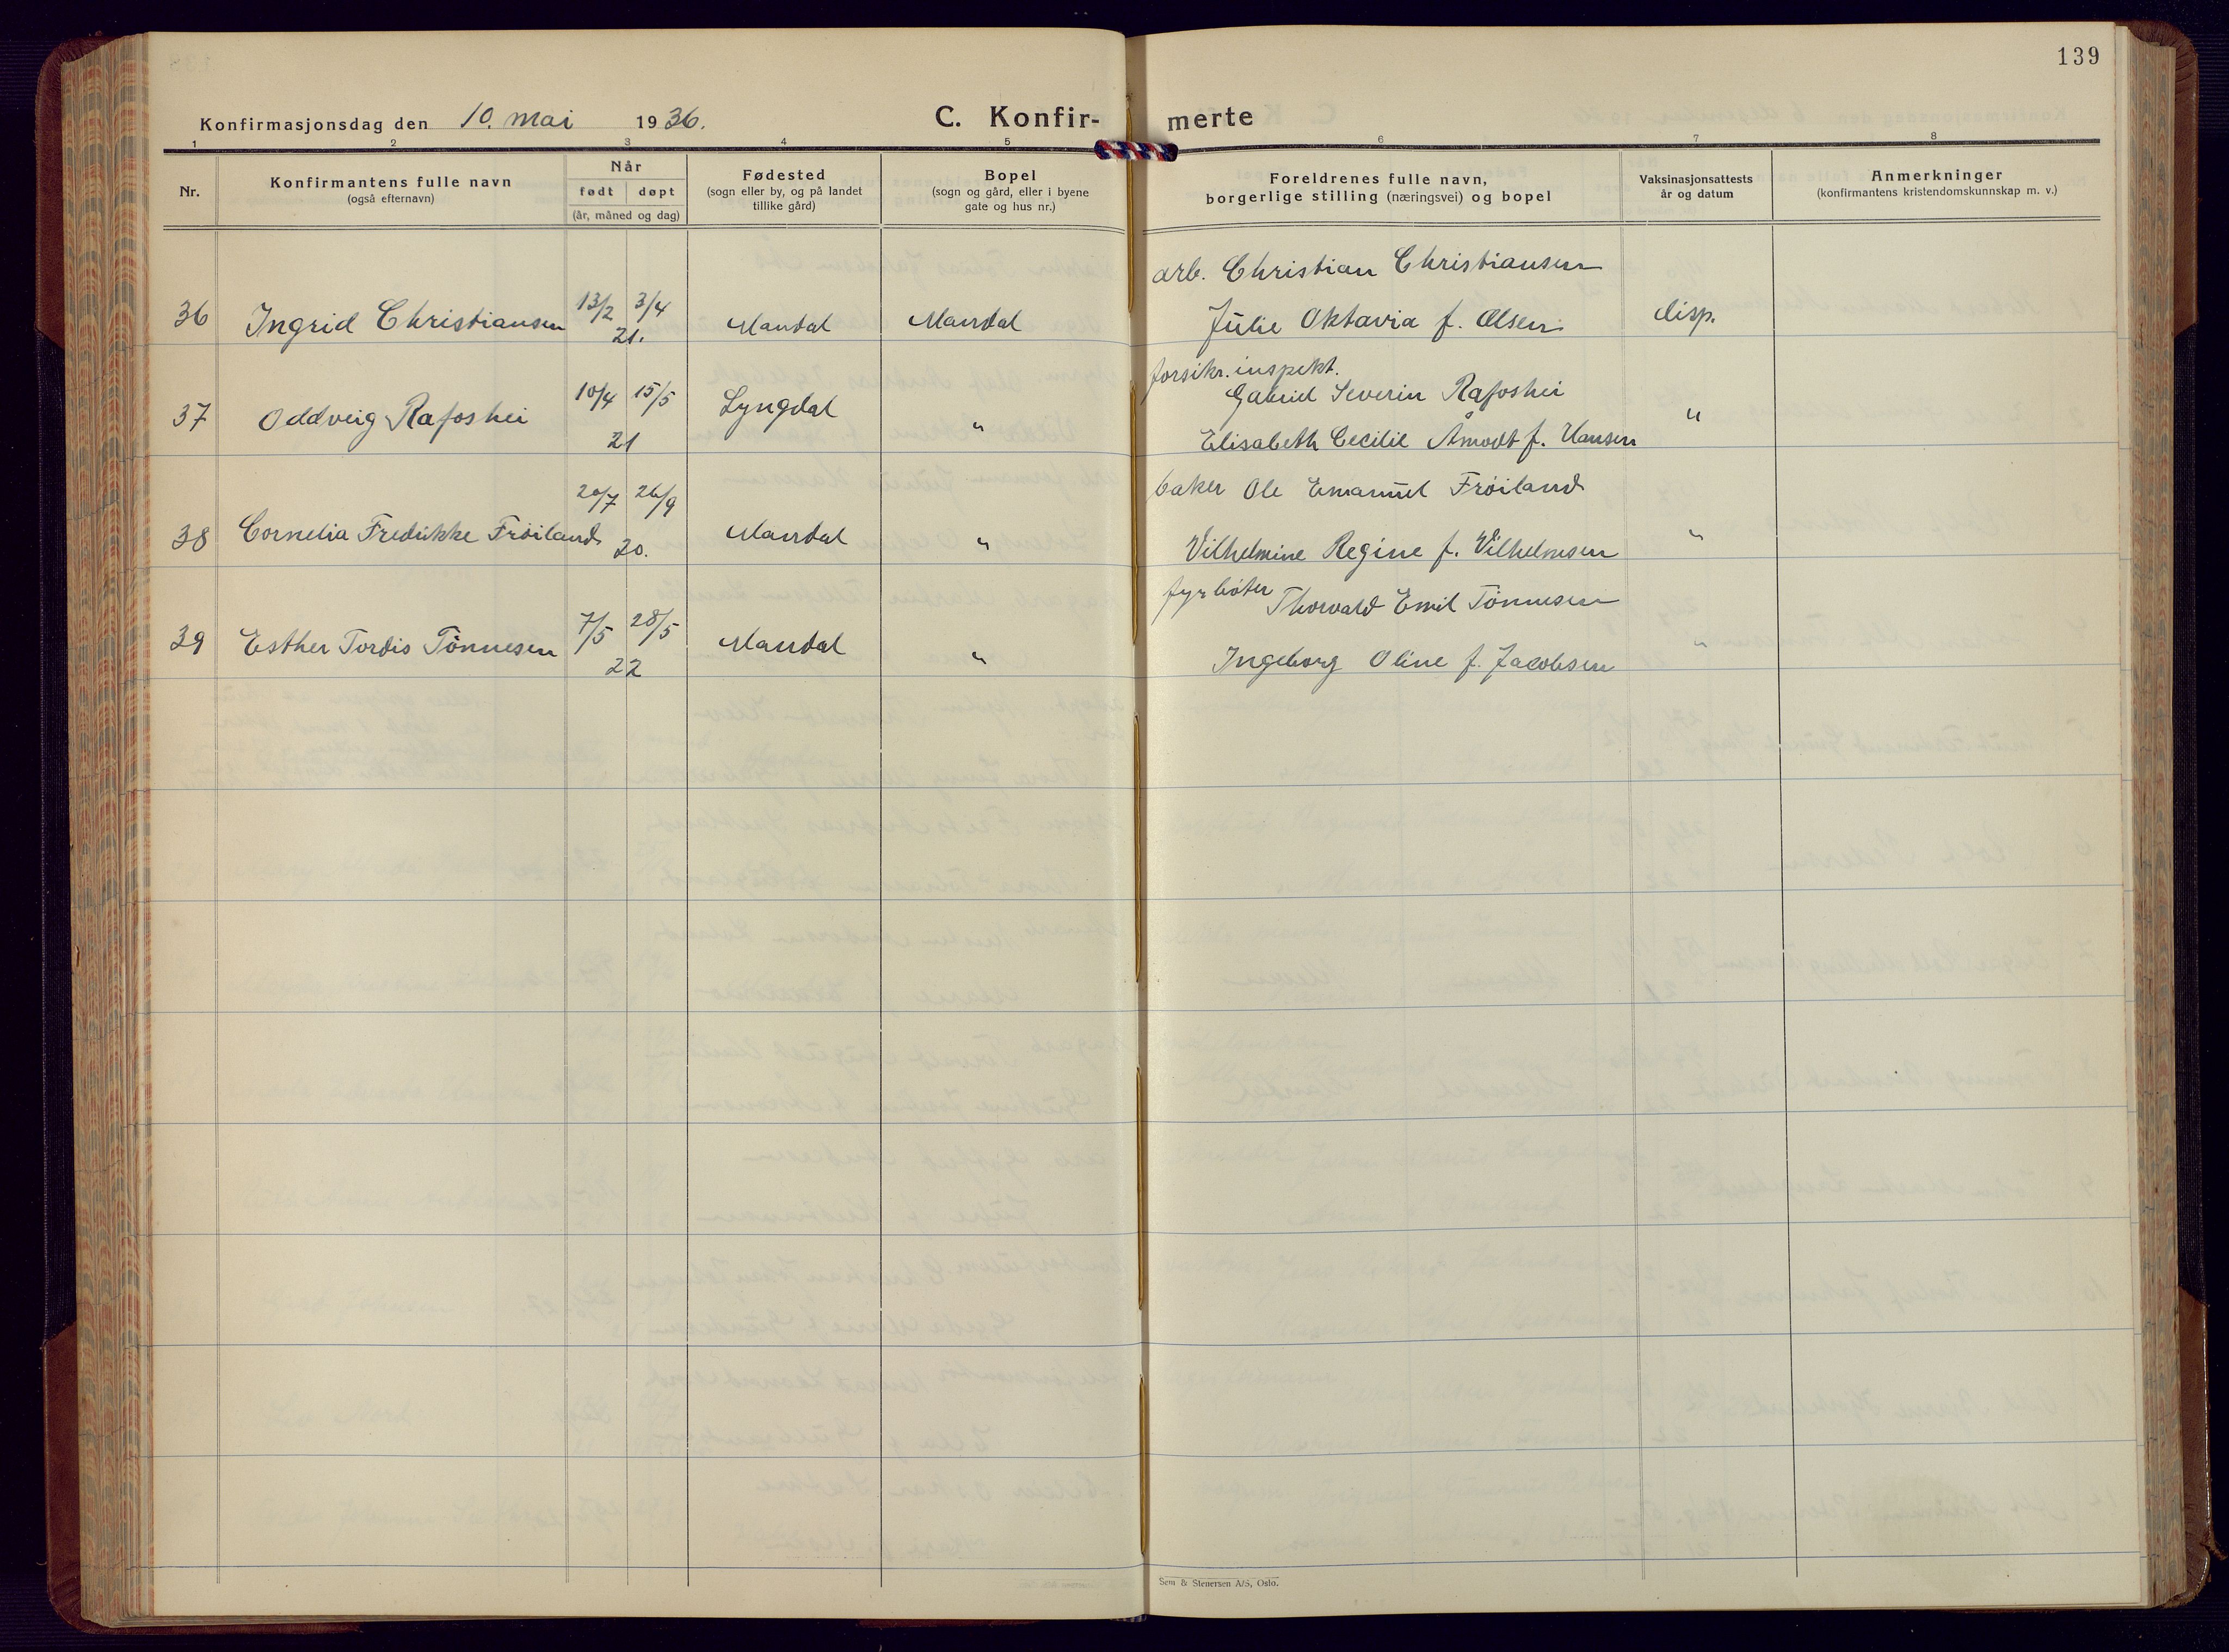 139
Konfirmasjonsdag den 10. mai 1936.
C. Konfir- merte
1 2 3 4 5 6 7 8
Nr.
Konfirmantens fulle navn
(også efternavn)
Når
født døpt
(år, måned og dag)
Fødested
(sogn eller by, og på landet
tillike gård)
Bopel
(sogn og gård, eller i byene
gate og hus nr.)
Foreldrenes fulle navn,
borgerlige stilling (næringsvei) og bopel
Vaksinasjonsattests
år og datum
Anmerkninger
(konfirmantens kristendomskunnskap m. v.)
arb. Christian Christiansen
36 Ingrid Christiansen 13/2 3/4 21. Mandal Mandal Julie Oktavia f. Olsen disp.
forsikr. inspekt.
Gabriel Severin Rafoshei
37 Oddveig Rafoshei 10/4 15/5 21 Lyngdal " Elisabeth Cecilie Åmodt f. Hansen "
baker Ole Emanuel Fröiland
38 Cornelia Fredrikke Fröiland 20/7 26/9 20. Mandal " Vilhelmine Regine f. Vilhelmsen "
fyrböter Thorvald Emil Tönnesen
39 Esther Tordis Tönnesen 7/5 28/5 22 Mandal " Ingeborg Oline f. Jacobsen "
Sem & Stenersen A/S, Oslo.